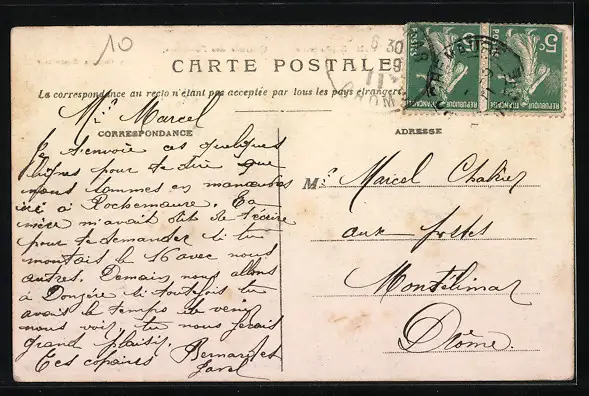 10
CARTE POSTALE
La correspondance au recto n'étant pas acceptée par tous les pays étrangers
CORRESPONDANCE
ADRESSE
Mr Marcel
Je t'envoie ces quelques
lignes pour te dire que
nous sommes en manœuvres
ici à Rochemaure. Ta
mère m'avait dit de t'écrire
pour te demander si tu
montais le 16 avec nous
autres. Demain nous allons
à Donzère si toutefois tu
avais le temps de venir
nous voir, tu nous ferais
grand plaisir.
Tes copains Bernard et
M. Marcel
aux postes
Montélimar
Drôme
5c
POSTES
REPUBLIQUE FRANCAISE
5c
POSTES
REPUBLIQUE FRANCAISE
6 30